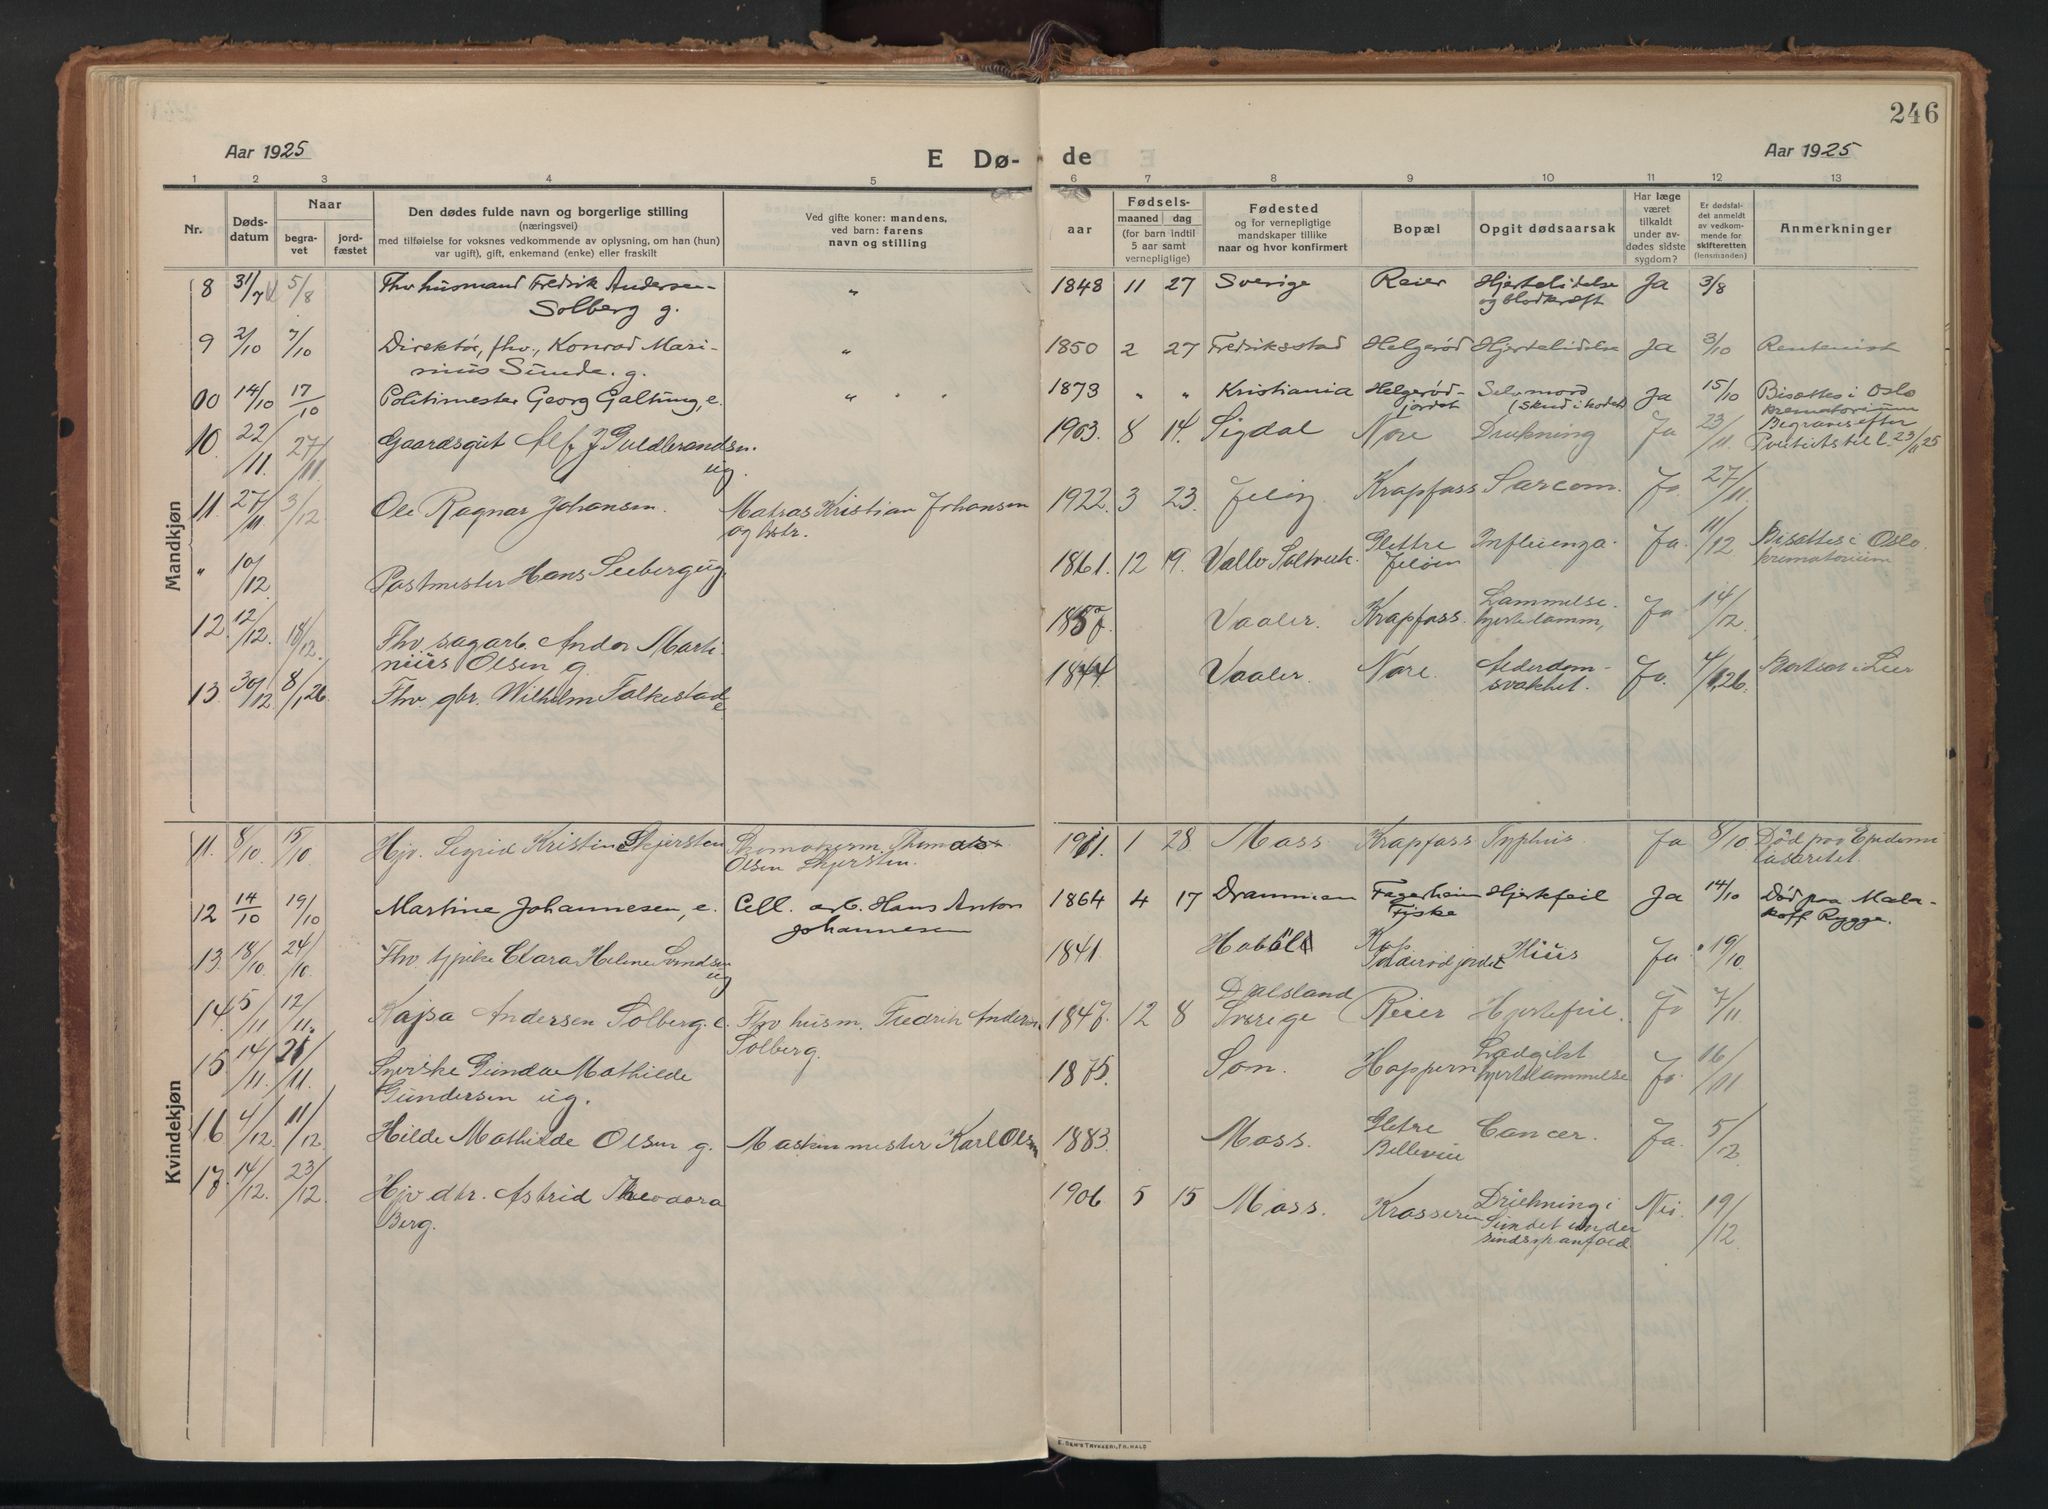 246
Aar 1925
E Dø-
de
Aar 1925
1 2 3 4 5 6 7 8 9 10 11 12 13
Nr.
Døds-
datum
Naar
begra-
vet
jord-
fæstet
Den dødes fulde navn og borgerlige stilling
(næringsvei)
med tilføielse for voksnes vedkommende av oplysning, om han (hun)
var ugift), gift, enkemand (enke) eller fraskilt
Ved gifte koner: mandens,
ved barn: farens
navn og stilling
Fødsels-
aar
maaned
dag
(for barn indtil
5 aar samt
vernepligtige)
Fødested
og for vernepligtige
mandskaper tillike
naar og hvor konfirmert
Bopæl
Opgit dødsaarsak
Har læge
været
tilkaldt
under av-
dødes sidste
sygdom?
Er dødsfal-
det anmeldt
av vedkom-
mende for
skifteretten
(lensmanden)
Anmerkninger
Mandkjøn
8 31/7 5/8 Fhv husmand Fredrik Andersen- " 1848 11 27 Sverige Reier Hjertelidelse Ja 3/8
Solberg g. og blodkræft
9 2/10 7/10 Direktør, fhv., Konrad Mari- " 1850 2 27 Fredriksstad Helgerød Hjertelidelse Ja 3/10 Rentenist
nius Sunde. g.
00 14/10 17/10 Politimester Georg Galtung, e. " " " 1873 " " Kristiania Helgerød- Selvmord Ja 15/10 Bisættes i Oslo
jordet (skud i hodet) krematorium
10. 22/11 27/11 Gaardsgut Alf J Guldbrandsn. 1903. 8 14. Sigdal Nore Drukning Ja 23/11. Begraves efter
ug. Politiets till. 23/11 25
11. 27/11 3/12 Ole Ragnar Johansen. Matros Kristian Johansen 1922. 3 23. Jeløy. Krapfoss Sarcom. Ja. 27/11.
og hstr.
" 10/12 Postmester Hans Seeberg ug. 1861. 12 19. Vallø Saltverk. Glettre Influenza. Ja. 11/12 Bisættes i Oslo
Jeløen krematorium
12. 12/12. 18/12. Fhv. sagarb. Andor Marti- Vaaler. Krapfoss. Lammelse. Ja 14/12.
nius Olsen g. hjertelamm,
13. 30/12 8/1 26. Fhv. gbr. Wilhelm Falkestad 1844. Vaaler. Nore. Alderdom- Ja. 4/1 26. Bortsat i Lier
e svakhet.
Kvindekjøn
11. 8/10. 15/10 Hjv. Sigrid Kristine Skjersten Thomas 1911. 1 28 Moss. Krapfoss Typhus. Ja 8/10 Død paa Epidemi
Olsen Skjersten. lasarettet.
12 14/10 19/10 Martine Johannesen, e. Cell. arb. Hans Anton 1864 4 17 Drammen Fagerheim Hjertefeil Ja 14/10 Død paa Mala-
Johannesen Fiske koff Rygge.
13. 18/10. 24/10. Fhv. tjpike Clara Helene Svendsen 1841. Hobøl Kap Ja 19/10
ug
14. 5/11 12/11. Kajsa Andersen Solberg. e. Fhv husm. Fredrik Andersn 1847. 12 8 Dalsland Reier Hjertefeil. Ja 7/11
Solberg. Sverige
15. 14/11. 21/11. Syerske Gunda Mathilde 1875. Son. Hoppern Ja. 16/11
Gundersen ug. hjertelammelse
16 4/12 11/12 Hilde Mathilde Olsen g. Maskinmester Karl Olsn 1883. Moss. Gletre Cancer. Ja. 5/12
Bellevue
17. 14/12. 23/12 Hjv. dtr. Astrid Theodora 1906 5 15 Moss. Krosseren Drukning i Nei. 19/12
Berg. Sundet under
sindsyk anfald.
E. SEM'S TRYKKERI, FR.HALD